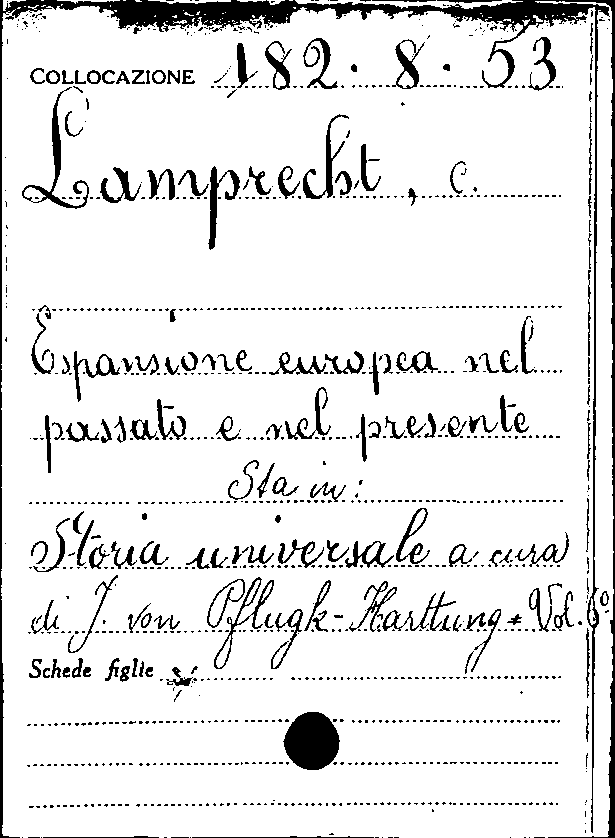 COLLOCAZIONE 182. 8. 53
Lamprecht, C.
Espansione europea nel
passato e nel presente
Sta in:
Storia universale a cura
di J. von Pflugk-Harttung. Vol. 6º
Schede figlie